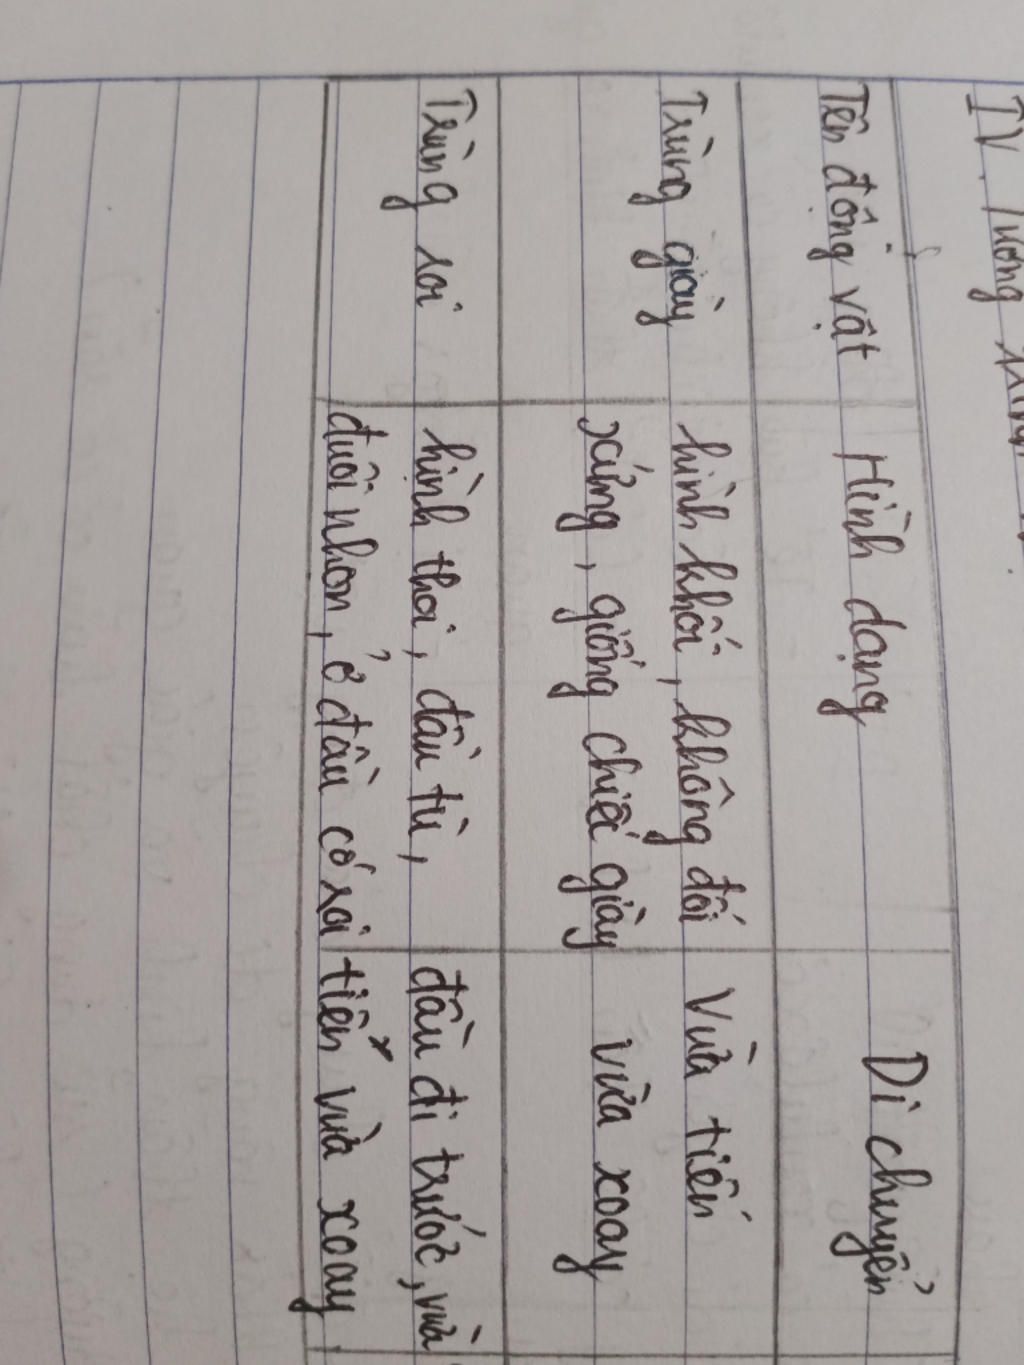 IV. Tường trình
Tên động vật Hình dạng Di chuyển
Trùng giày hình khối, không đối Vừa tiến
xứng, giống chiếc giày vừa xoay
Trùng roi hình thoi, đầu tù, đầu đi trước, vừa
đuôi nhọn, ở đầu có roi tiến vừa xoay